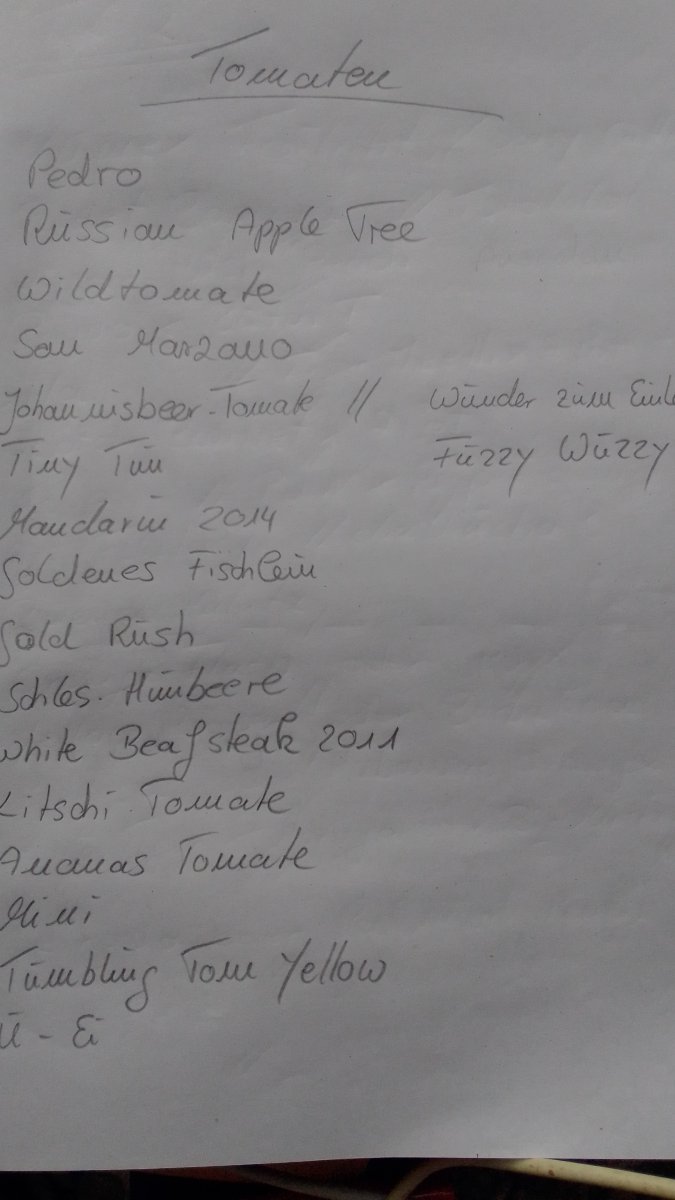 Tomaten
Pedro
Russian Apple Tree
Wildtomate
San Marzano
Johannisbeer-Tomate // Wunder zum
Tiny Tim Fuzzy Wuzzy
Mandarin 2014
Goldenes Fischlein
Gold Rush
Schles. Himbeere
White Beafsteak 2011
Litschi Tomate
Ananas Tomate
Mini
Tumbling Tom Yellow
Ü - Ei